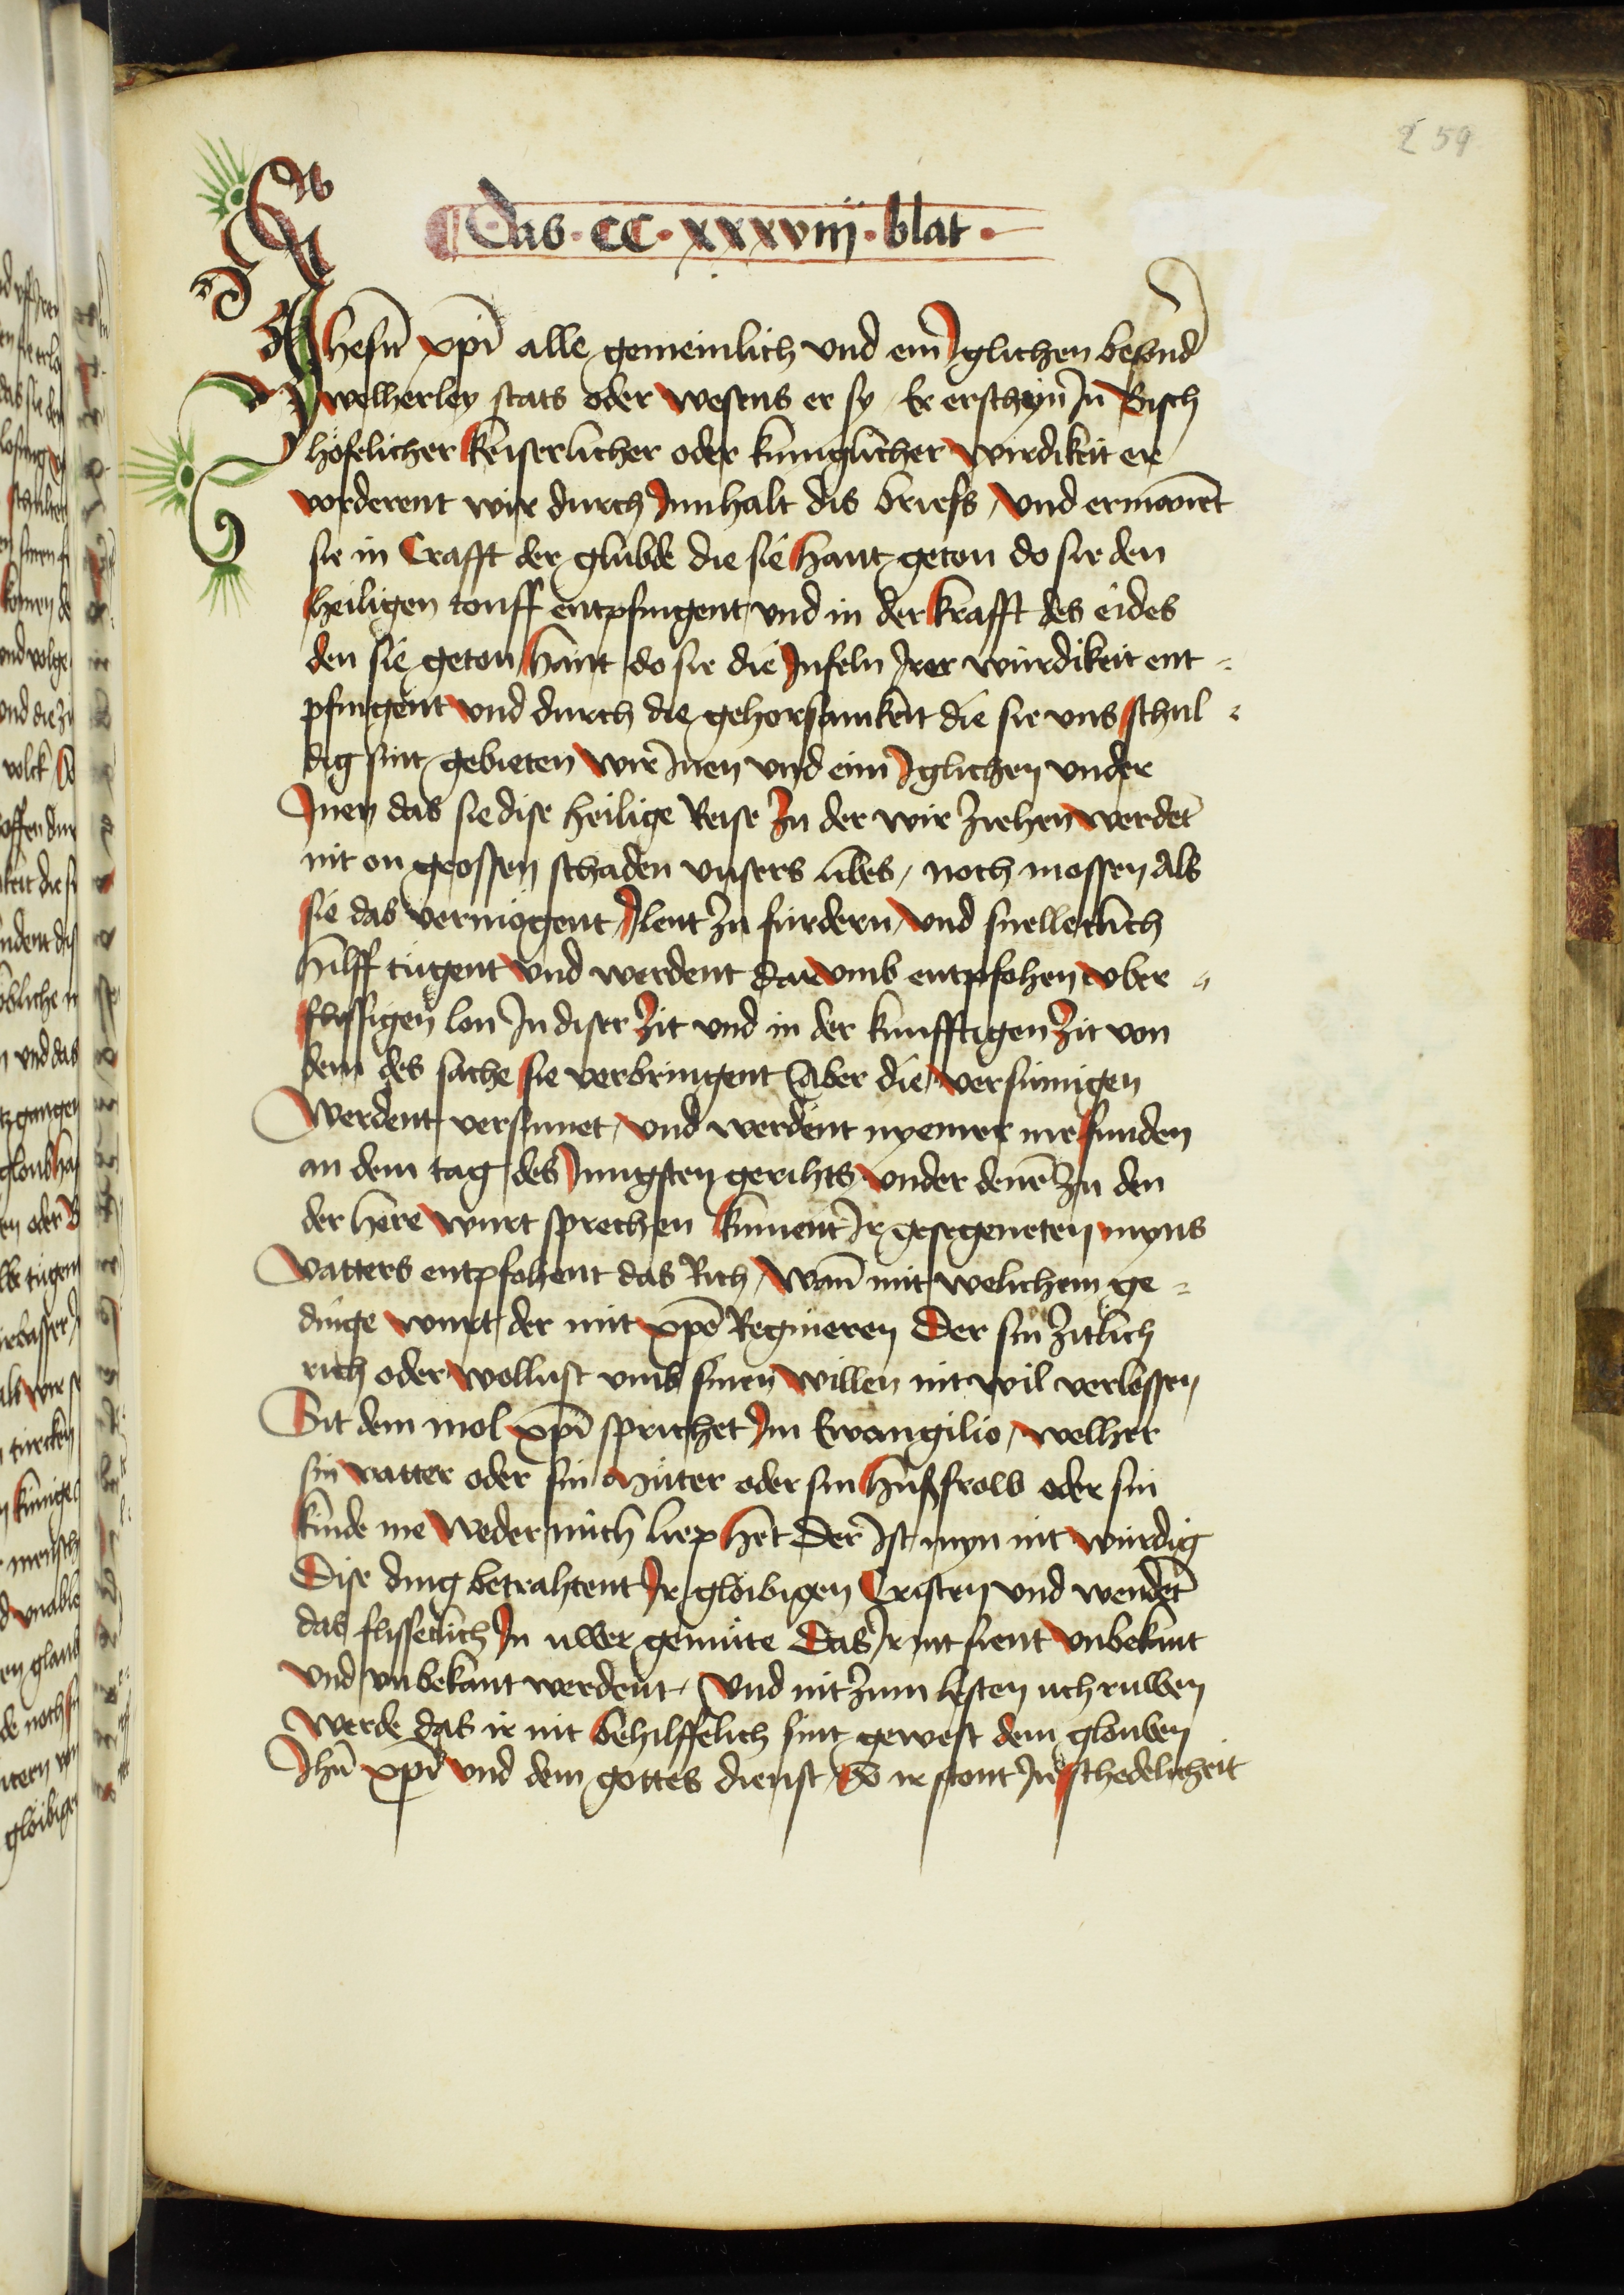 259
Das · CC · xxxviiij · blat ·
Jhesu xpi alle gemeinlich vnd ein Jglichen besund
welherley stats oder wesens er sy / Er erschyn In Bisch
höfelicher keiserlicher oder kuniglicher wirdikeit er
vorderent wir durch Innhalt dis briefs / vnd ermanent
sie in Crafft der glübde die sie hant geton do sie den
heiligen touff entpfingent vnd in der krafft des eides
den sie geton hant do sie die Jnfeln Irer würdikeit ent =
pfingent vnd durch die gehorsamkeit die sie vns schul =
dig sint gebieten wir Inen vnd eim Jglichen vnder
Inen das sie dise heilige Reise zu der wir ziehen werdet
nit on grossen schaden vnsers libes / noch mossen als
sie das vermögent Ilent zu fürdern / vnd snelleclich
hilff tügent vnd werdent darvmb entpfohen vber =
flissigen lon In diser Zit vnd in der kunfftigen Zit von
dem des sache sie verbringent Aber die versumigen
Werdent versumet / vnd werdent nyemer me funden
an dem tag des Jungsten gerihts vnder dene zu den
der here wurt sprechen kument Ir gesegeneten myns
vatters entpfohent das Rich / Wan mit welichem ge =
dinge wurt der mit xpo Regnieren Der sin zitlich
rich oder wollust vmb sinen willen nit wil verlossen
Sit dem mol xpi sprichet Im Ewangilio / welher
sin vatter oder sin Müter oder sin hußfrow oder sin
kinde me weder mich liep het Der Ist myn nit würdig
Dise ding betrahtent Ir glöibigen Cristen vnd wendet
das flisseclich In uwer gemüte Das Ir nit sient vnbekant
vnd vnbekant werdent / Vnd nit zum lesten uch ruwen
werde das ir nit behilffelich sint gewest dem glouben
Jhu xpi vnd dem gottes dienst / So ir stont In schedelicheit